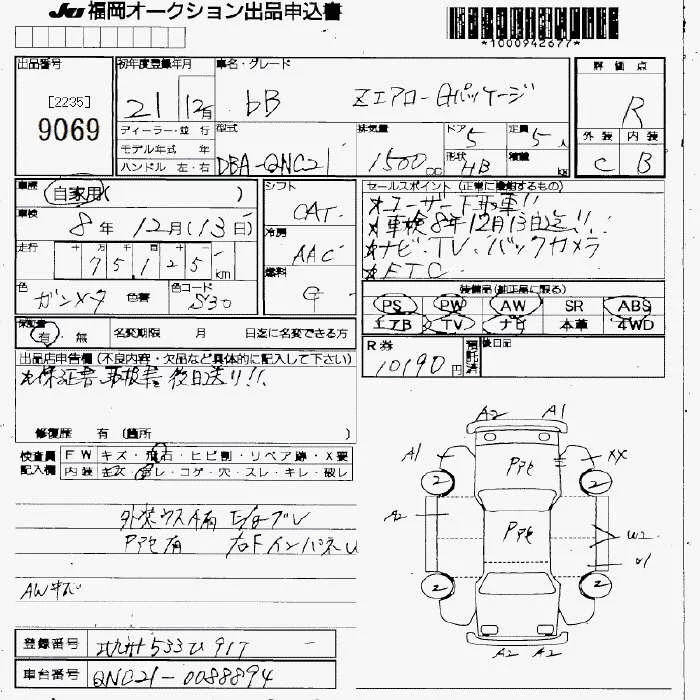 JU 福岡オークション出品申込書
*1000942677*
出品番号
[2235]
9069
初年度登録年月
21 12月
車名・グレード
bB Zエアロ-Gパッケージ
評価点
R
外装 内装
C B
ディーラー・並行
モデル年式 年
ハンドル 左・右
型式
DBA-QNC21
排気量
1500cc
ドア 5
形状 HB
定員 5人
積載 kg
車歴
自家用( )
車検
8年12月(13日)
走行
十 万 千 百 十
75,125 km
色
ガンメタ 色替
色コード
S30
シフト
CAT
冷房
AAC
燃料
G
セールスポイント (正常に機能するもの)
★ユーザー下取車!!
★車検8年12月13日迄!!
★ナビ、TV、バックカメラ
★ETC
装備品(純正品に限る)
PS PW AW SR ABS
エアB TV ナビ 本革 4WD
保証書
有・無 名変期限 月 日迄に名変できる方
R券
10190円
預託済
後日品
出品店申告欄 (不良内容・欠品など具体的に記入して下さい)
★保証書、取扱書 後日送り!!
修復歴 有 (箇所 )
検査員
記入欄
FW キズ・飛石・ヒビ割・リペア跡・X要
内装 キズ・汚レ・コゲ・穴・スレ・キレ・破レ
外装ウスA有
Pアセ有 右Fインパネ
AWキズ
A2 A1
A1 XX
Pアセ
2 2
A2
Pアセ
W2
2 2
A2 A2
登録番号 北九州533ひ917
車台番号 QNC21-0088894